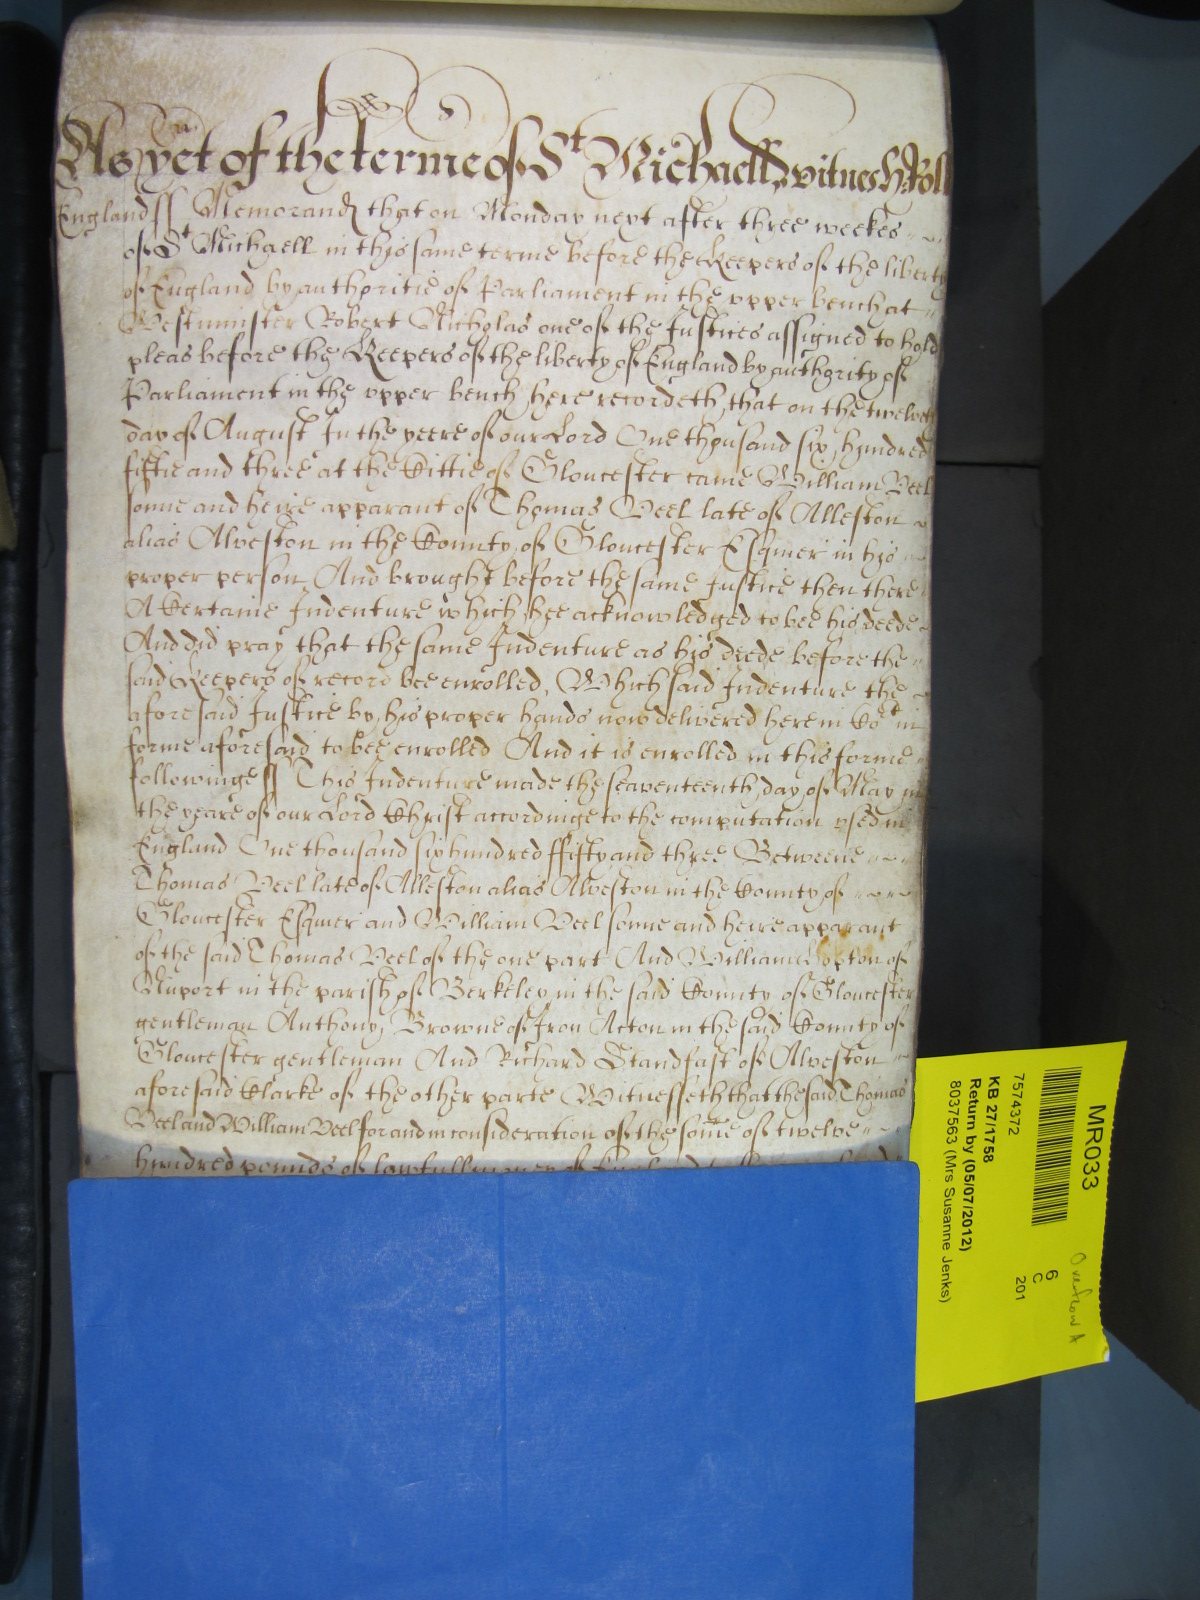 As yet of the terme of St Michaell witnes H: Roll
England ss Memorand that on Monday next after three weekes
of St Michaell in this same terme before the Keepers of the liberty
of England by authoritie of Parliament in the upper bench at
Westminster Robert Nicholas one of the Justices assigned to hold
pleas before the Keepers of the liberty of England by authority of
Parliament in the upper bench here recordeth that on the twelveth
day of August In the yeere of our Lord One thousand six hundred
fiftie and three at the Cittie of Gloucester came William Veel
sonne and heire apparant of Thomas Veel late of Alleston
alias Alveston in the County of Gloucester Esquier in his
proper person And brought before the same Justice then there
A Certaine Indenture which hee acknowledged to bee his deede
And did pray that the same Indenture as his deede before the
said Keepers of record bee enrolled, Which said Indenture the
aforesaid Justice by his proper hands now delivered here in Cort in
forme aforesaid to bee enrolled And it is enrolled in this forme
followinge ss This Indenture made the seaventeenth day of May in
the yeare of our Lord Christ accordinge to the computation used in
England One thousand six hundred ffifty and three Betweene
Thomas Veel late of Alleston alias Alveston in the County of
Gloucester Esquier and William Veel sonne and heire apparant
of the said Thomas Veel of the one part And William of
Nuport in the parish of Berkeley in the said County of Gloucester
gentleman Anthony Browne of Iron Acton in the said County of
Gloucester gentleman And Richard Standfast of Alveston
aforesaid Clarke of the other parte Witnesseth that the said Thomas
Veel and William Veel for and in consideration of the some of twelve
hundred pounds of lawfull money of England
MR033
7574372
KB 27/1758
Return by (05/07/2012)
8037563 (Mrs Susanne Jenks)
6
C
201
Overflow A